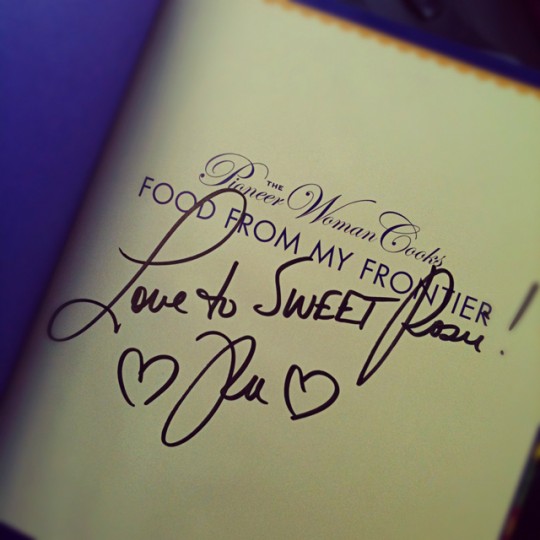 THE
Pioneer Woman Cooks
FOOD FROM MY FRONTIER
Love to SWEET Rosie!
Ree